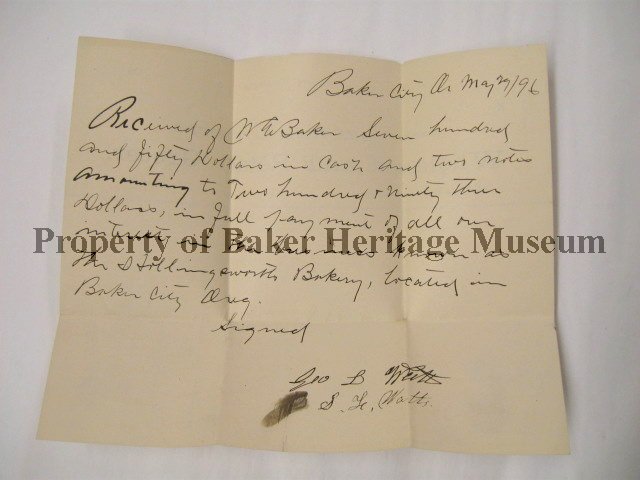 Baker City Or May 29/96
Received of Wm Baker Seven hundred
and fifty Dollars in Cash and two notes
amounting to Two hundred & Ninety three
Dollars, in full payment of all our
interest in the business known as
the Hollingsworth Bakery, located in
Baker City Oreg.
Signed
Geo B Watts
S. Watts
Property of Baker Heritage Museum